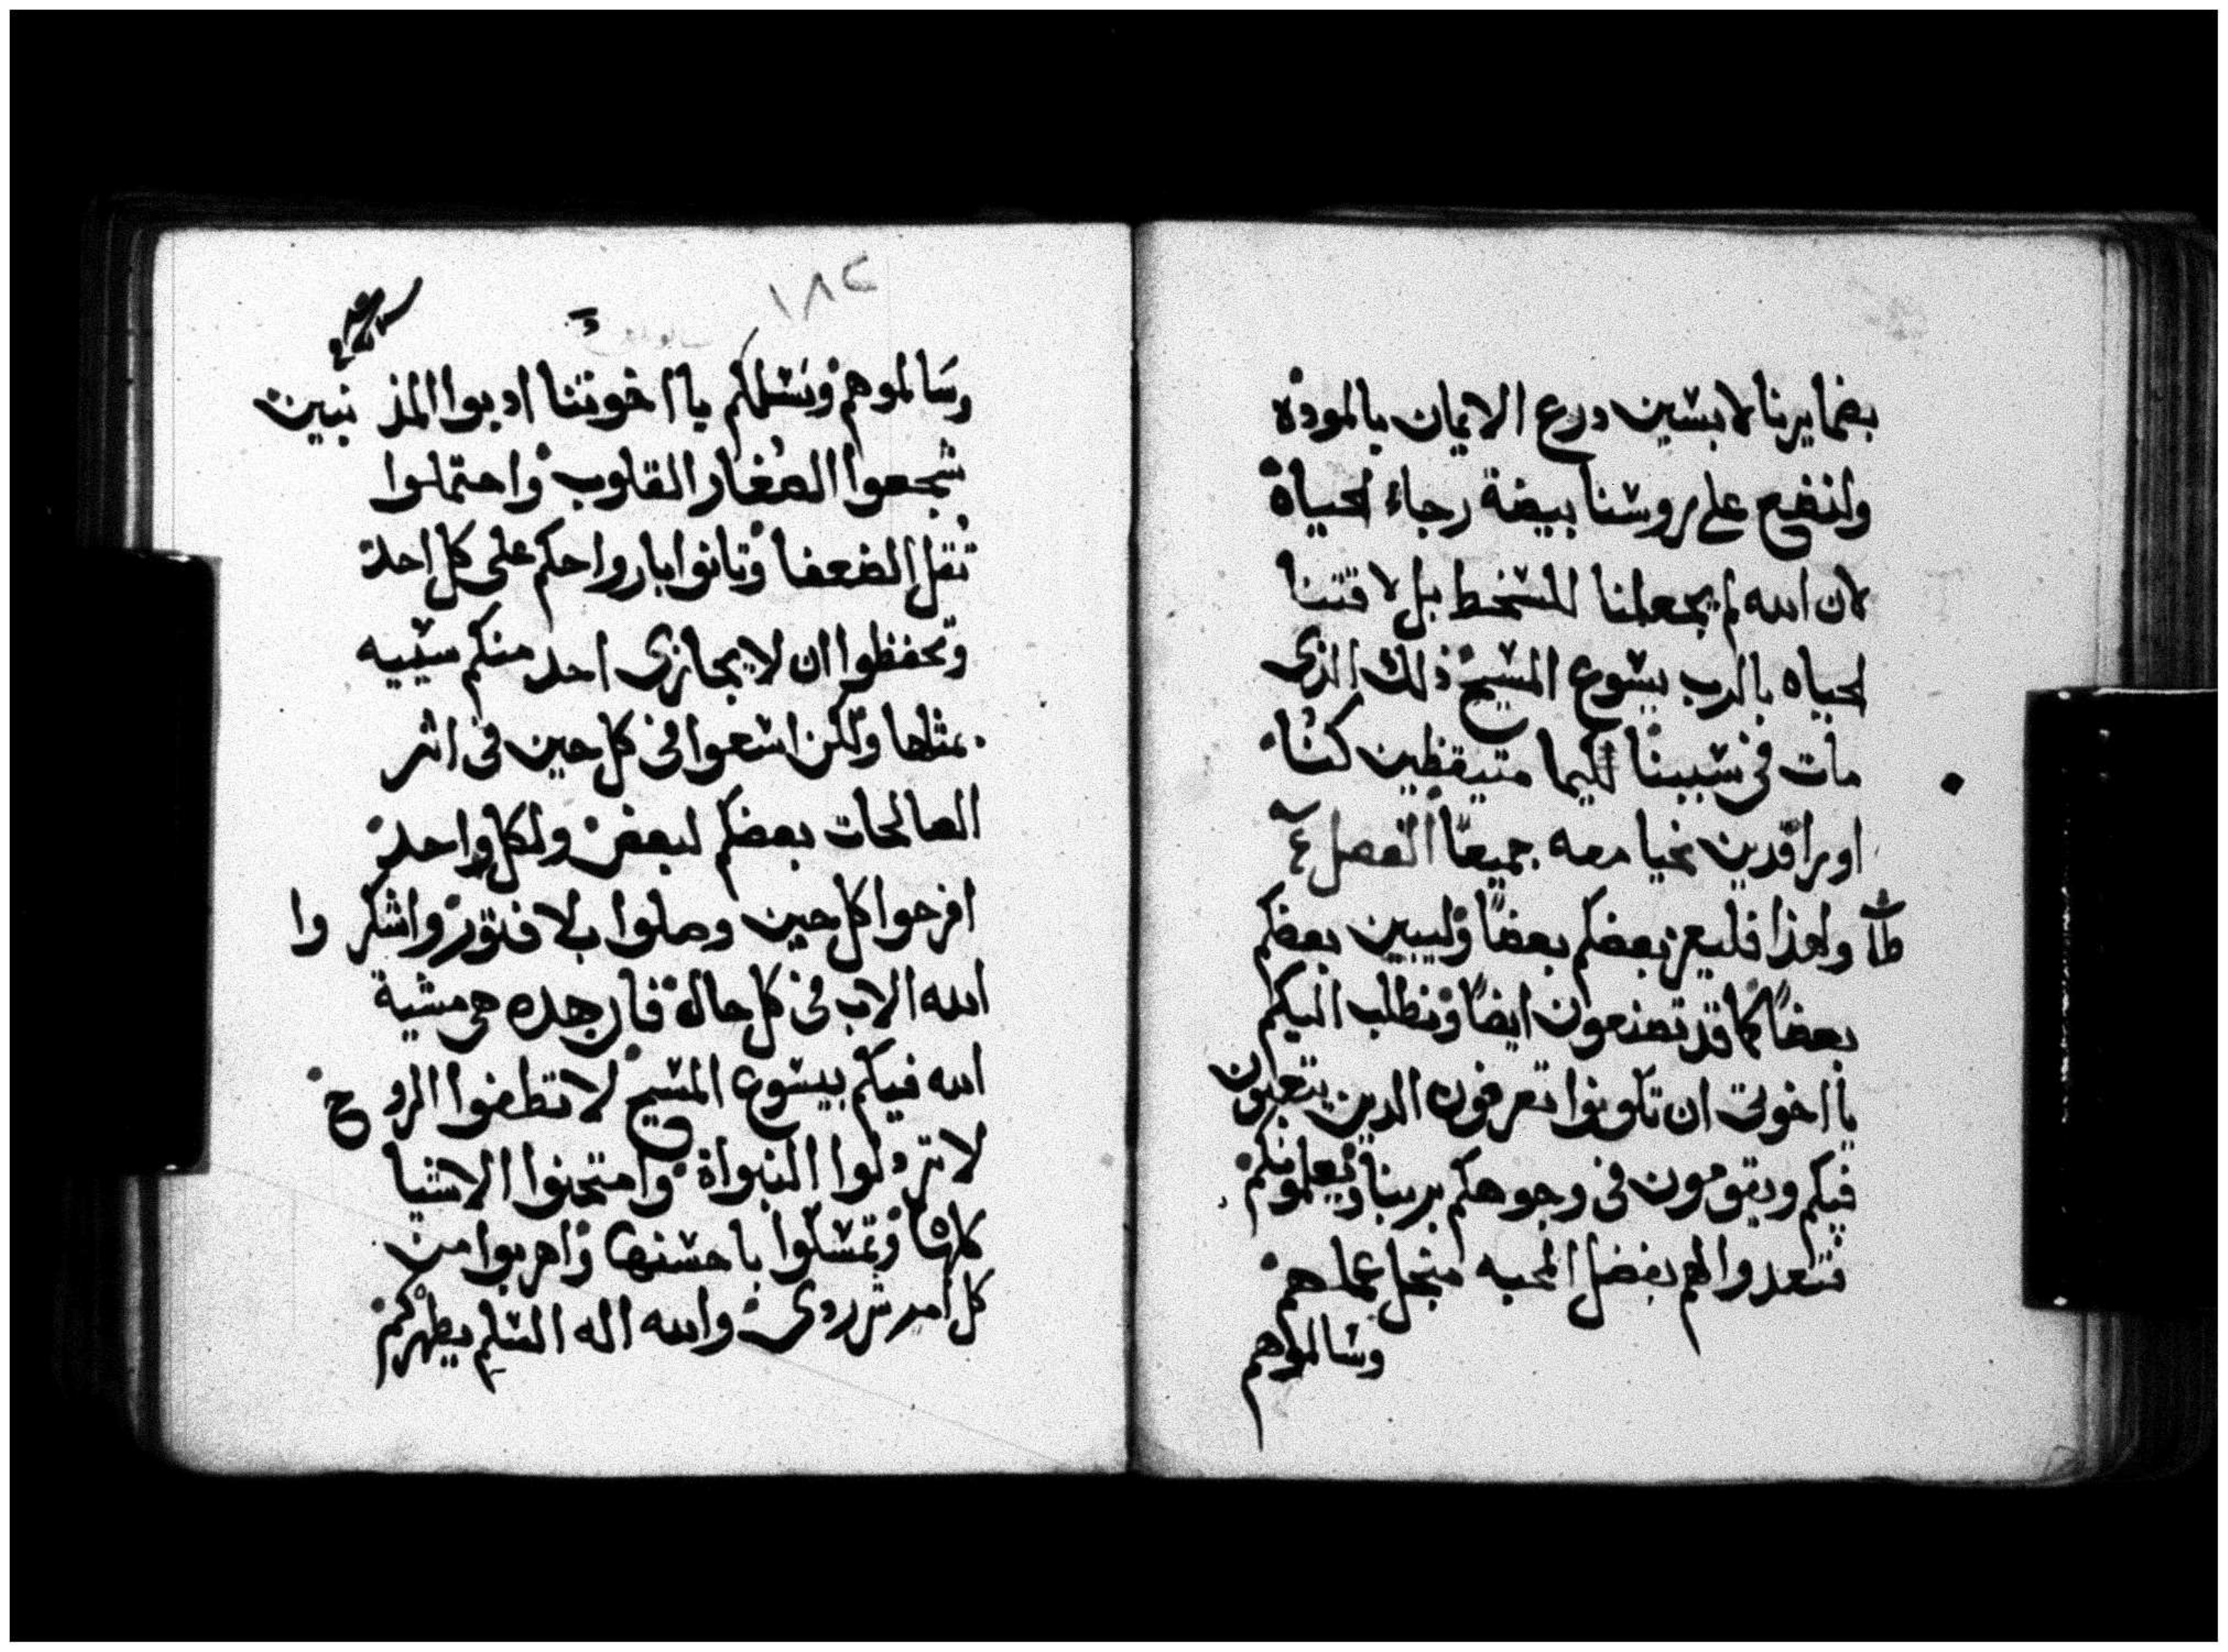 بضمايرنا لابسين درع الايمان بالموده
ولنضع على روسنا بيضة رجاء الحياة
لان الله لم يجعلنا للسخط بل لاقتنا
الحياه بالرب يسوع المسيح ذلك الذى
مات فى سببنا لكيما متيقظين كنا
او راقدين نحيا معه جميعًا الفصل
ولهذا فليعز بعضكم بعضًا وليبين بعضكم
بعضًا كما قد تصنعون ايضًا ونطلب اليكم
يا اخوتى ان تكونوا تعرفون الدين يتعبون
فيكم ويقومون فى وجوهكم بربنا ويعلمونكم
فتعدوا لهم بفضل المحبه منجل عملهم
وسالموهم
١٨٢
وسالموهم ونسلكم يا اخوتنا ادبوا المذنبين
شجعوا الصغار القلوب واحتملوا
ثقل الضعفا وتانوا بارواحكم على كل احد
وتحفظوا ان لا يجازى احد منكم سييه
بمثلها ولكن اسعوا فى كل حين فى اثر
الصالحات بعضكم لبعض ولكل واحد
افرحوا كل حين وصلوا بلا فتور واشكروا
الله الاب فى كل حالة فان هده هى مشية
الله فيكم بيسوع المسيح لا تطفوا الروح
لا تردلوا النبواة وامتحنوا الاشيا
كلها وتمسكوا باحسنها واهربوا من
كل امر شر ردى والله اله السلم يطهركم